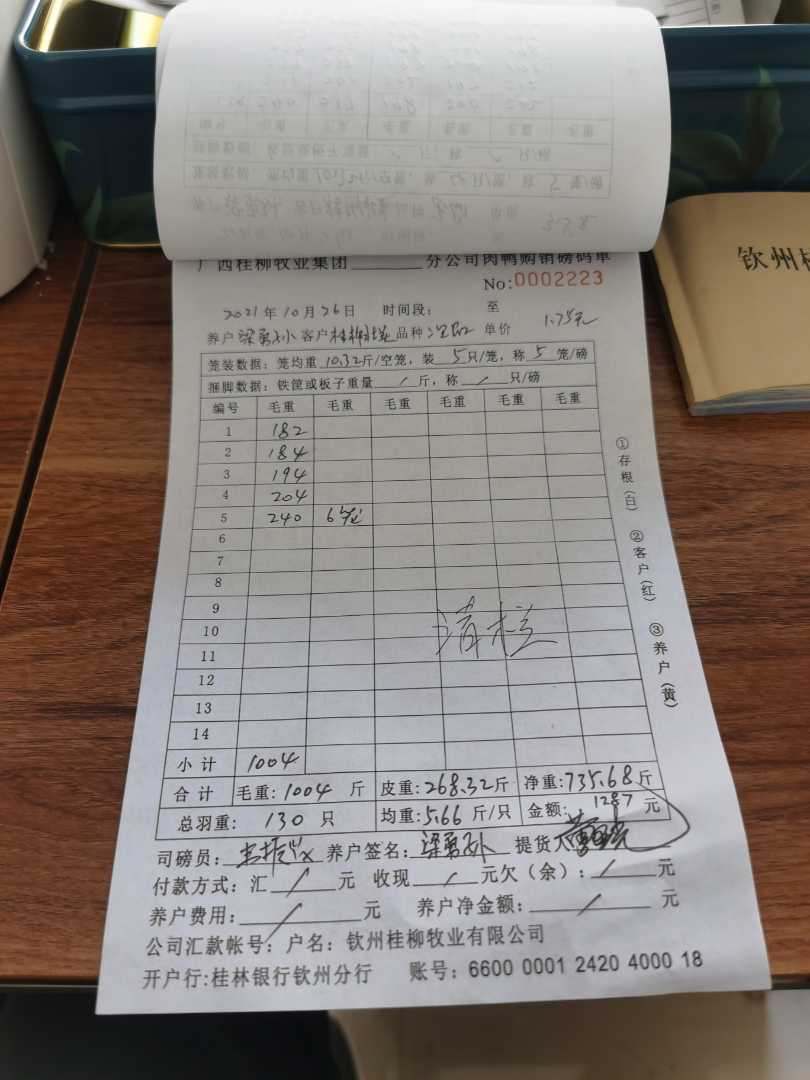 广西桂柳牧业集团______分公司肉鸭购销磅码单
No:0002223
2021年10月26日 时间段: 至
养户梁勇外 客户桂柳 品种 单价 1.75元
笼装数据: 笼均重10.32斤/空笼, 装5只/笼, 称5笼/磅
捆脚数据: 铁筐或板子重量/斤, 称/只/磅
编号 毛重 毛重 毛重 毛重 毛重 毛重
1 182
2 184
3 194
4 204
5 240 6笼
6
7
8
9
10
11
12
13
14
清栏
小计 1004
合计 毛重:1004斤 皮重:268.32斤 净重:735.68斤
总羽重: 130只 均重:5.66斤/只 金额:1287元
司磅员: 养户签名:梁勇外 提货人
付款方式: 汇/元 收现/元欠(余):/元
养户费用:/元 养户净金额:/元
公司汇款帐号: 户名: 钦州桂柳牧业有限公司
开户行:桂林银行钦州分行 账号: 6600 0001 2420 4000 18
①存根(白) ②客户(红) ③养户(黄)
钦州桂